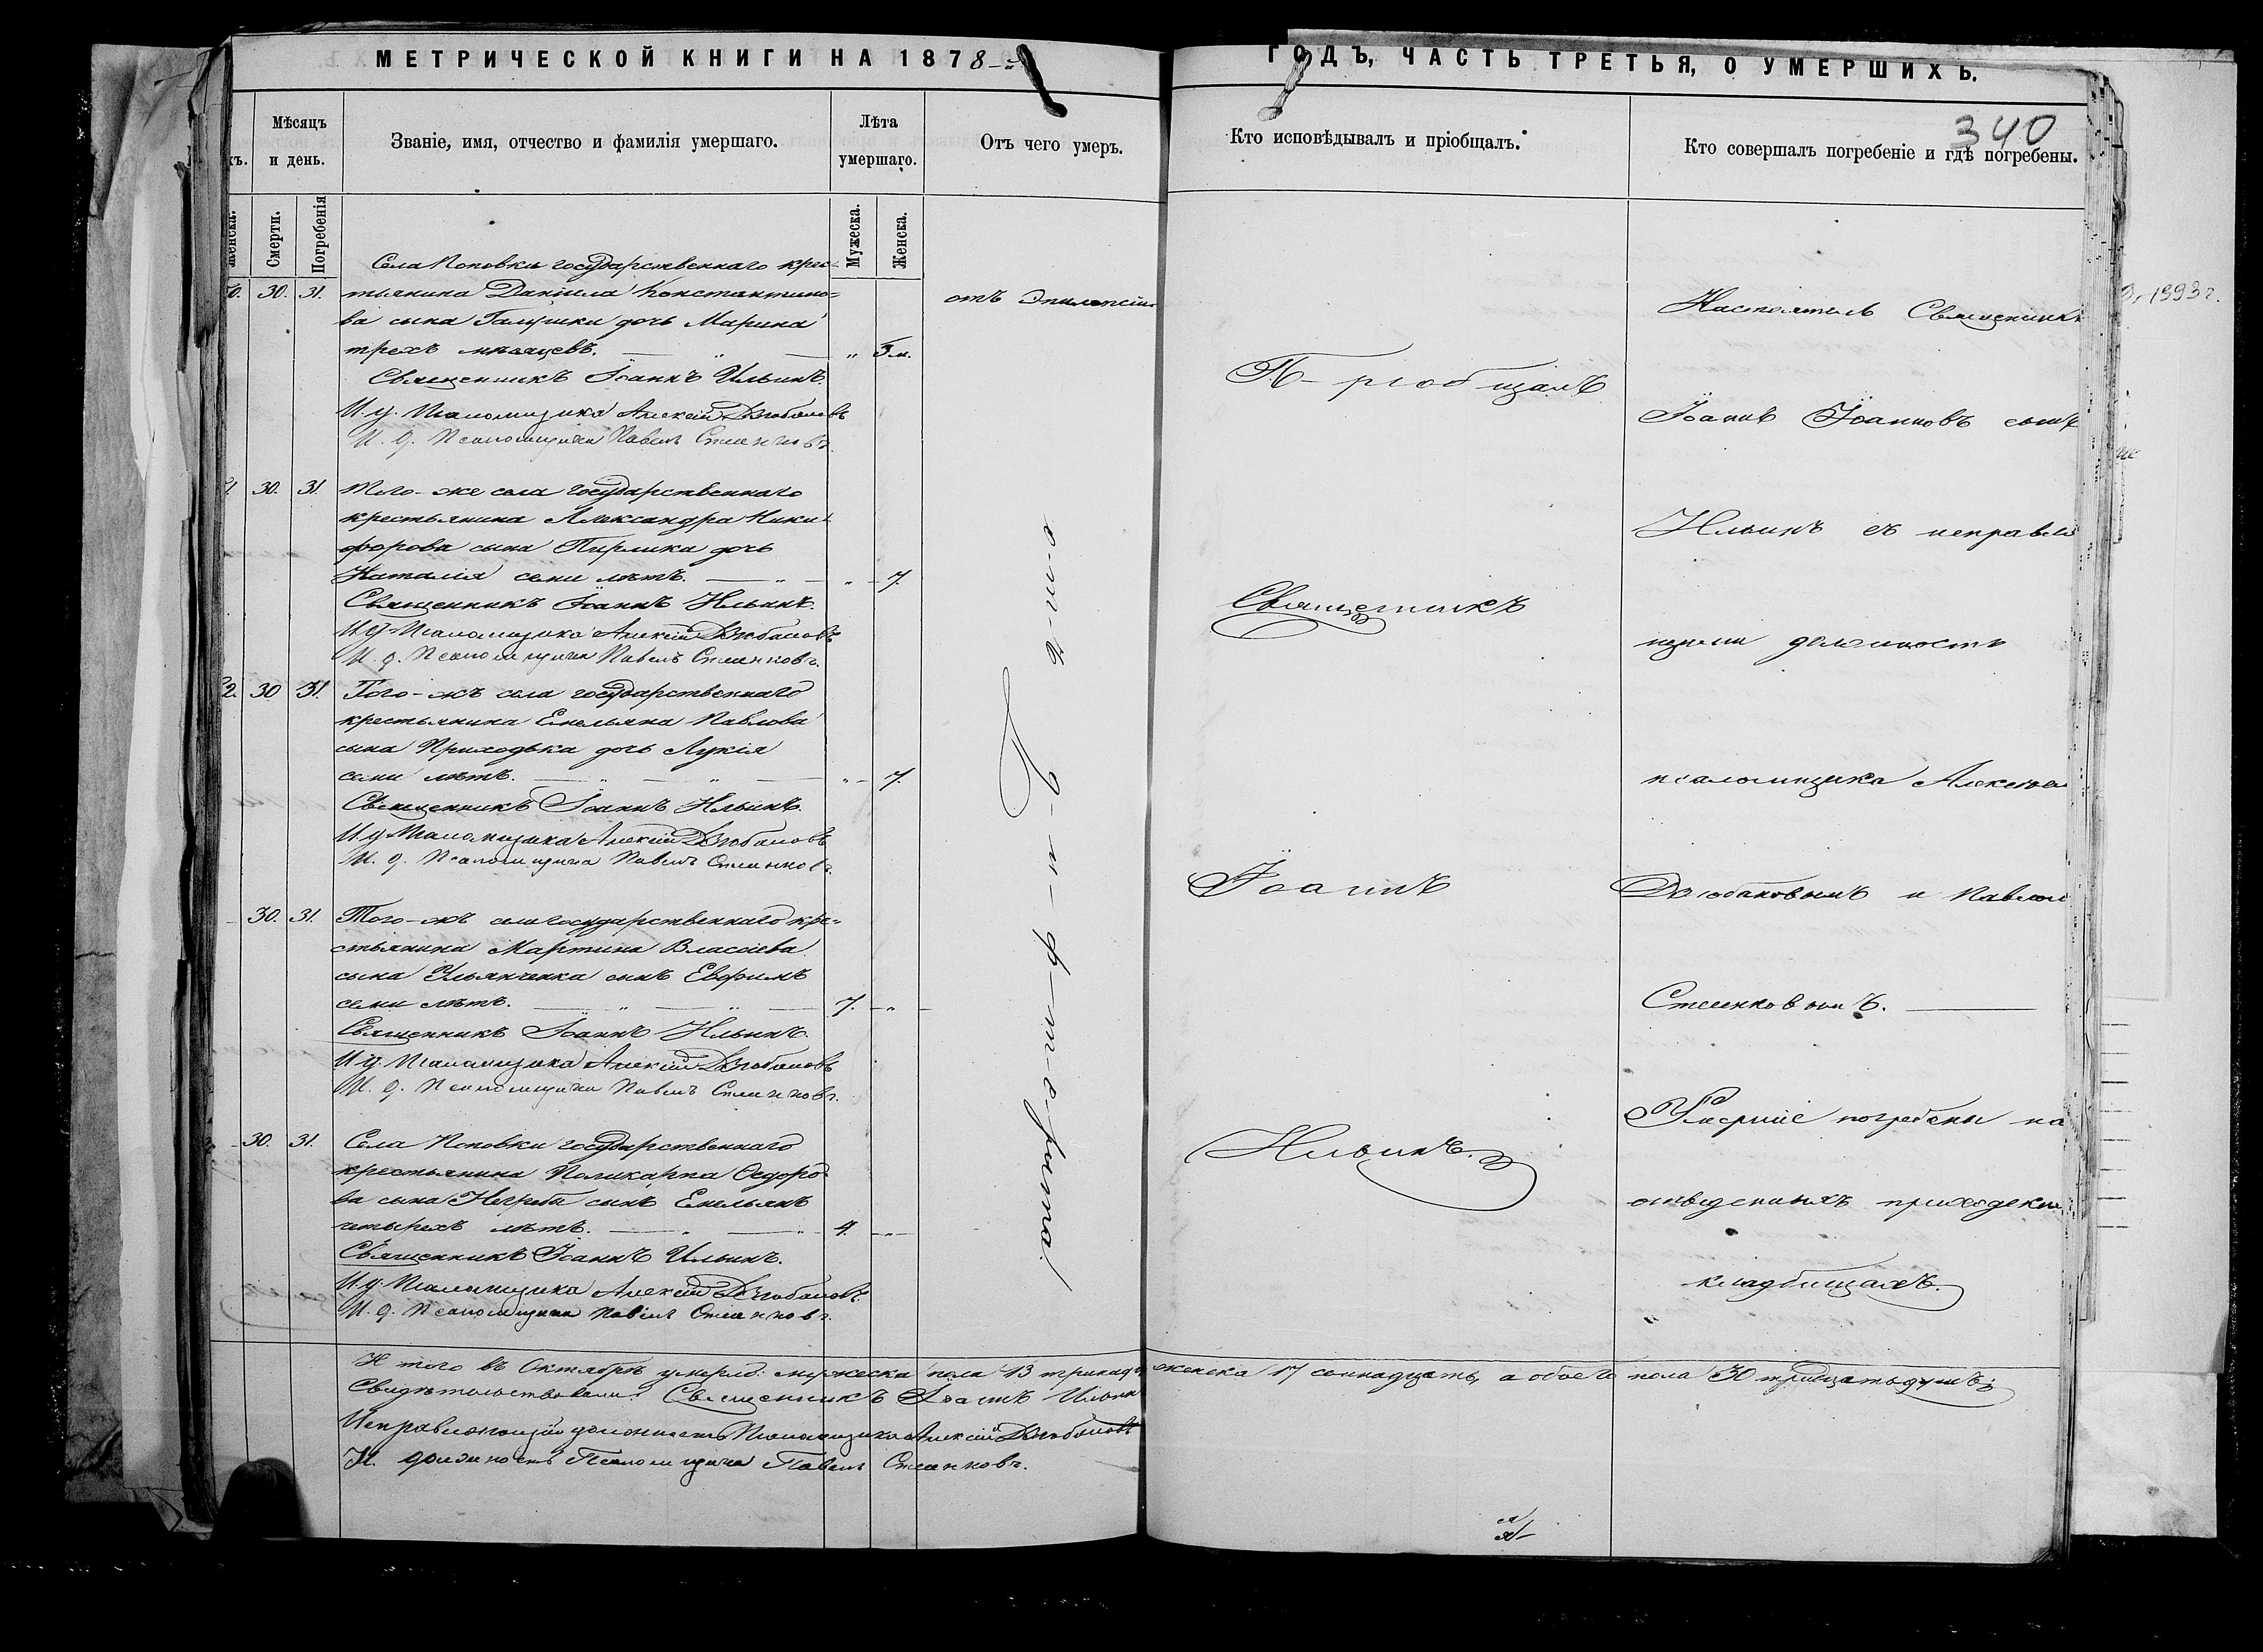 МЕТРИЧЕСКОЙ КНИГИ НА 1878
ГОДЪ, ЧАСТЬ ТРЕТЬЯ, О УМЕРШИХЪ.
340
Мѣсяцъ и день.
Званіе, имя, отчество и фамилія умершаго.
Лѣта умершаго.
Отъ чего умеръ.
Кто исповѣдывалъ и пріобщалъ.
Кто совершалъ погребеніе и гдѣ погребены.
Женска.
Смерти.
Погребенія
Мужеска.
Женска.
Села Поповки государственнаго крес-
30. 31. тьянина Даніила Константино-
ва сына Галушки дочь Марина
трехъ мѣсяцевъ. 3 м.
отъ Эпилепсіи
Священникъ Іоаннъ Ильинъ.
И. д. Псаломщика Алексій Дзюбановъ
И. д. Псаломщика Павелъ
30. 31. Того-же села государственнаго
крестьянина Александра Ники-
форова сына Пирлика дочь
Наталія семи лѣтъ. 7.
Священникъ Іоаннъ Ильинъ.
И. д. Псаломщика Алексій Дзюбановъ
И. д. Псаломщика Павелъ
30 31. Того-жъ села государственнаго
крестьянина Емельяна Павлова
сына Приходька дочь Лукія
семи лѣтъ. 7.
Священникъ Іоаннъ Ильинъ.
И. д. Псаломщика Алексій Дзюбановъ
И. д. Псаломщика Павелъ
30. 31. Того-жъ села государственнаго кре-
стьянина Мартина Власіева
сына Ульянченка сынъ Евфимъ
семи лѣтъ. 7.
Священникъ Іоаннъ Ильинъ.
И. д. Псаломщика Алексій Дзюбановъ
И. д. Псаломщика Павелъ
30. 31. Села Поповки государственнаго
крестьянина Поликарпа Ѳедоро-
ва сына Негреби сынъ Емельянъ
четырехъ лѣтъ. 4.
Священникъ Іоаннъ Ильинъ.
И. д. Псаломщика Алексій Дзюбановъ.
И. д. Псаломщика Павелъ
отъ Дифтерита
Пріобщалъ
Священникъ
Іоаннъ
Ильинъ.
Настоятель Священникъ
Іоаннъ Іоанновъ сынъ
Ильинъ съ исправля
ющими должность
псаломщика Алексіем
Дзюбановымъ и Павлом
Умершіе погребены на
отведенныхъ приходски
кладбищахъ.
Итого въ Октябрѣ умерло: мужеска пола 13 тринадц женска 17 семнадцать, а обоего пола 30 тридцать душъ.
Свидѣтельствовали: Священникъ Іоаннъ Ильин
Исправляющій должность Псаломщика Алексій Дзюбановъ
И. должность Псаломщика Павелъ
1993 г.